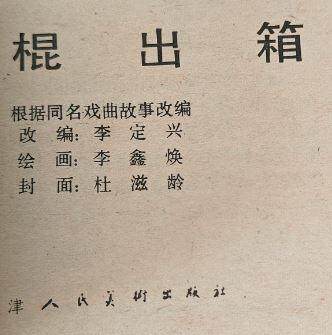 棍出箱
根据同名戏曲故事改编
改编：李定兴
绘画：李鑫焕
封面：杜滋龄
津人民美術出版社